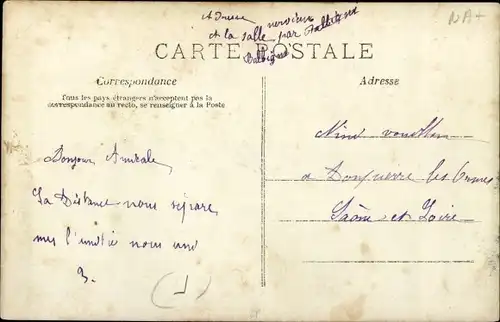 Adresse
et la salle par
Balbigny
NA+
CARTE POSTALE
Correspondance
Tous les pays étrangers n'acceptent pas la
correspondance au recto, se renseigner à la Poste
Bonjour Amicale
La Distance nous sépare
mes l'amitié nous uni
Adresse
a les Ormes
Saône et Loire